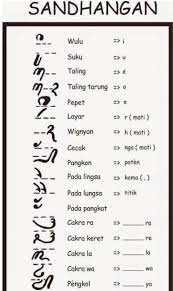 SANDHANGAN
Wulu => i
Suku => u
Taling => é
Taling tarung => o
Pepet => e
Layar => r ( mati )
Wignyan => h ( mati )
Cecak => nga ( mati )
Pangkon => paten
Pada lingsa => koma ( , )
Pada lungsa => titik
Pada pangkat
Cakra ra => ______ ra
Cakra keret => ______ re
Cakra la => ______ la
Cakra wa => ______ wa
Pengkol => ______ ya